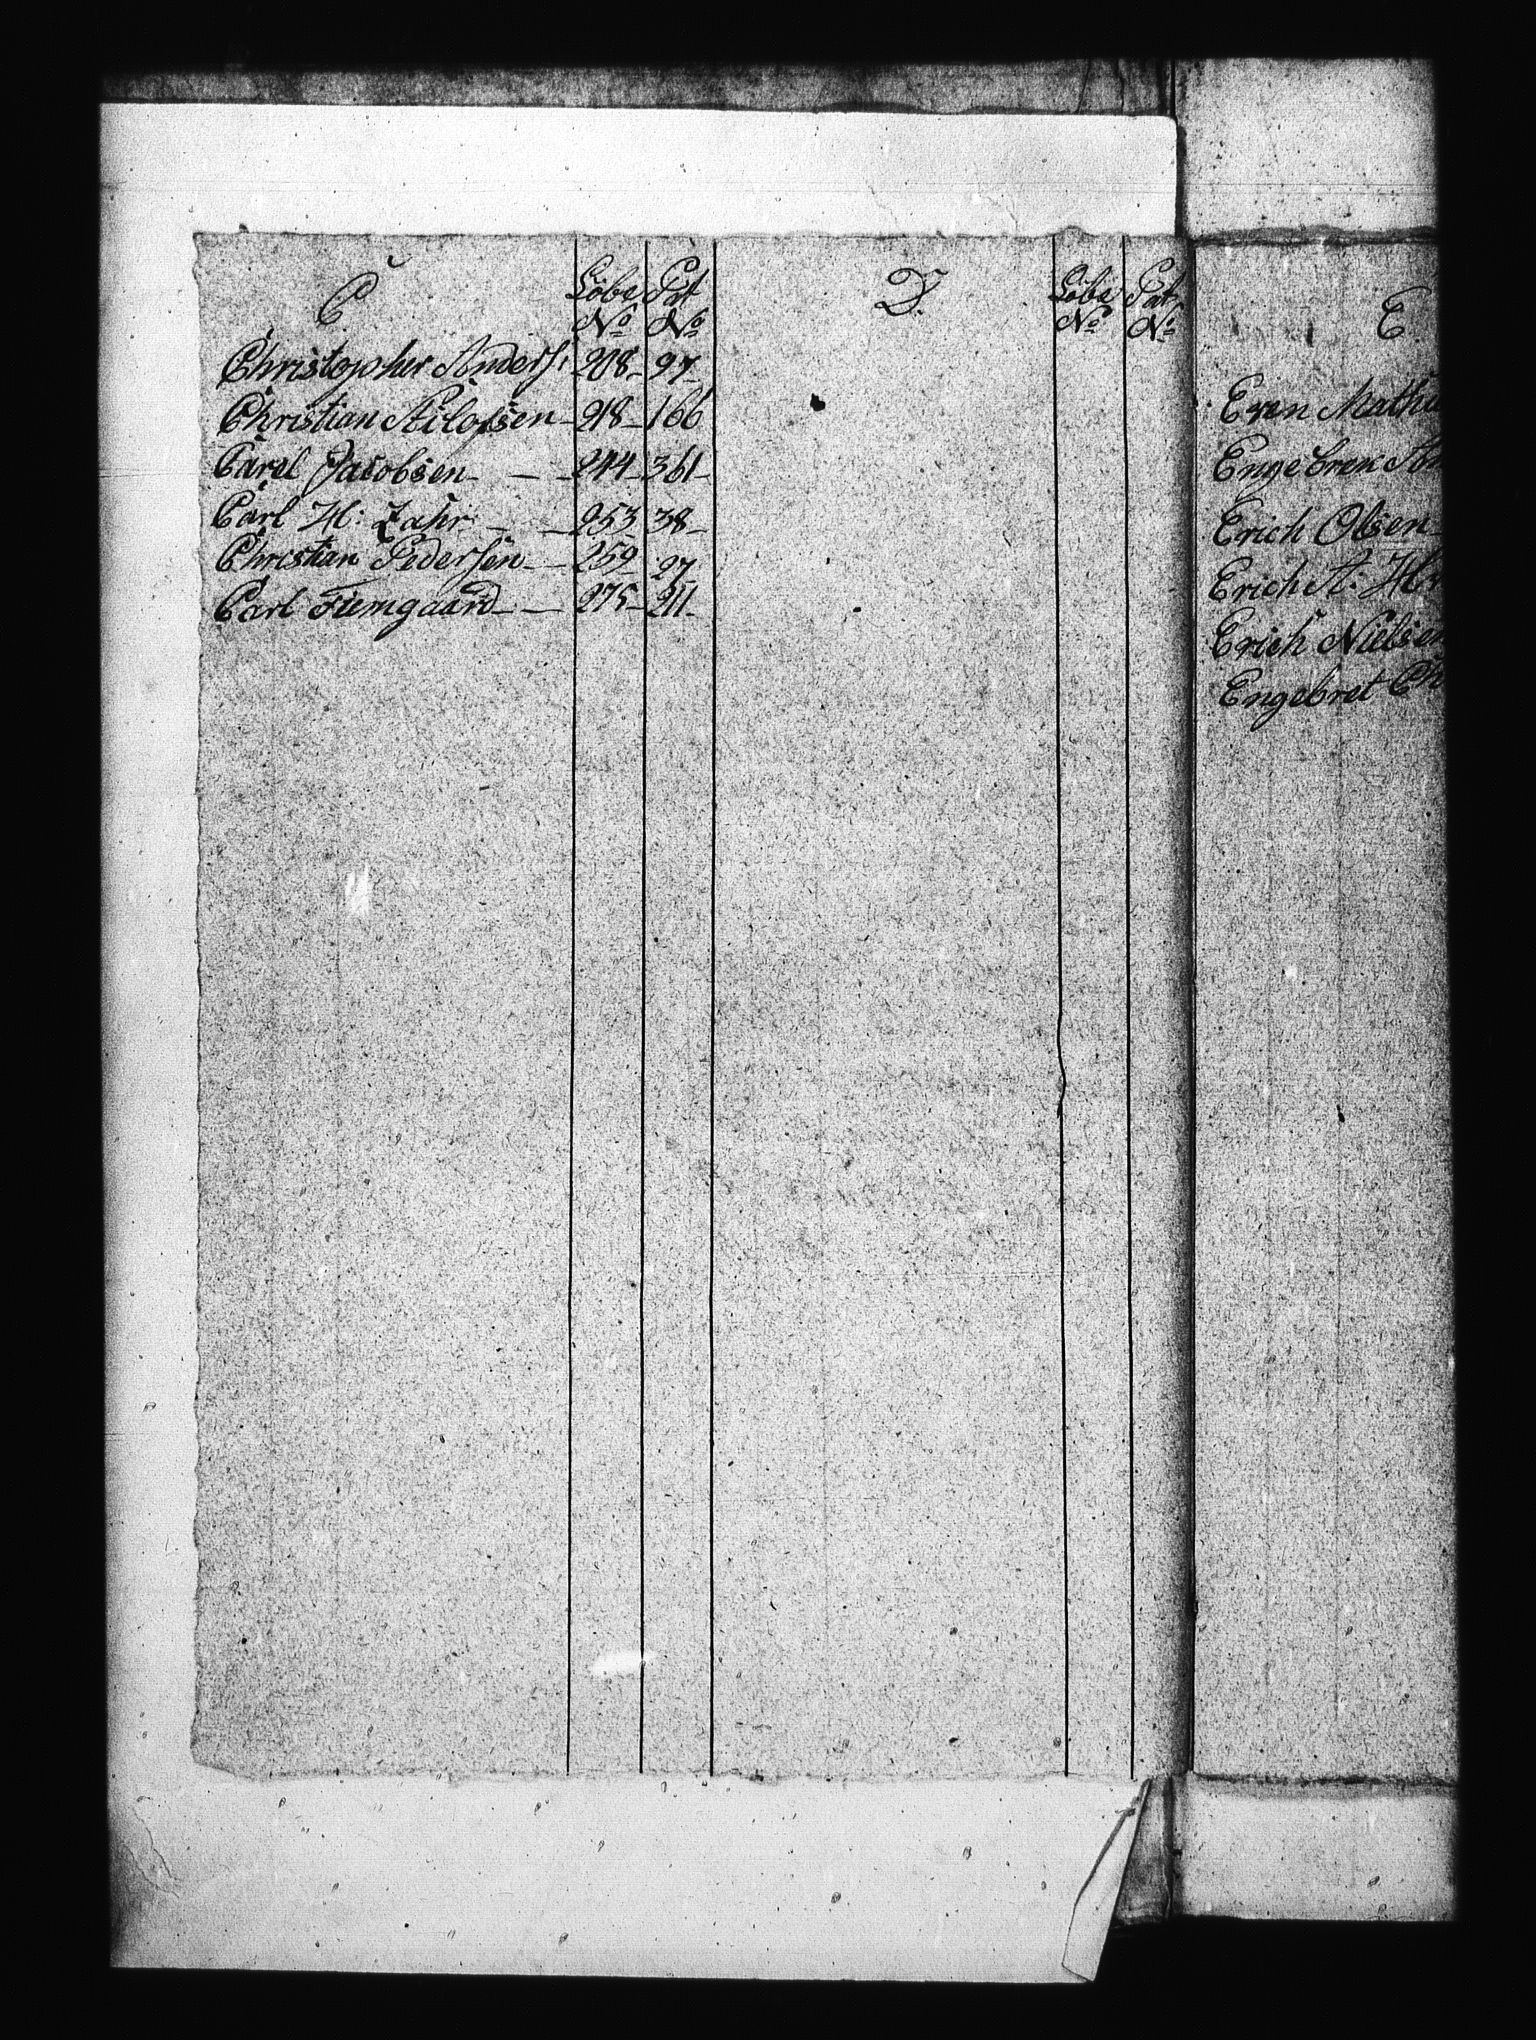 C Löbe No Pat No
Christopher Anders: 208 97
Christian Nilossen 218 166
Carel Jacobsen 244 361
Carl H: Zahr 253 38
Christian Pedersen 259 27
Carl Fiemgaard 275 211
D. Löbe No Pat No
E
Even Mathi
Engebret
Erich Olsen
Erich A:
Erich Nielsen
Engebret Ch